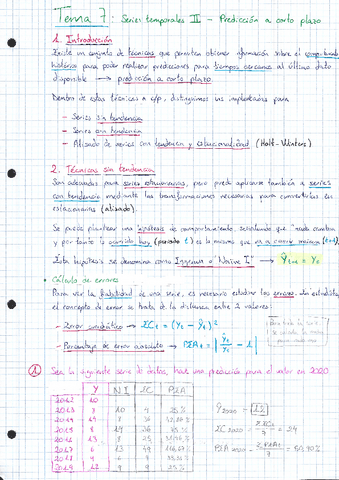 Tema 7: Series temporales II – Predicción a corto plazo
1. Introducción
Existe un conjunto de técnicas que permiten obtener información sobre el comportamiento
histórico para poder realizar predicciones para tiempos cercanos al último dato
disponible → predicción a corto plazo.
Dentro de estas técnicas a c/p, distinguimos las
– Series sin tendencia
– Series con tendencia
– Alisado de series con tendencia y estacionalidad (Holt-Winters)
2. Técnicas sin tendencia
Son adecuadas para series estacionarias, pero puede aplicarse también a series
con tendencia mediante las transformaciones necesarias para convertirlas en
estacionarias (alisado).
Se puede plantear una hipótesis de comportamiento, señalando que "nada cambia
y por tanto lo ocurrido hoy (periodo t) es lo mismo que va a ocurrir mañana (t+1)
Esta hipótesis se denomina como Ingenua o "Naive I" → Ŷt+1 = Yt
• Cálculo de errores
Para ver la fiabilidad de una serie, es necesario estudiar los errores. En estadística
el concepto de error se trata de la distancia entre 2 valores:
– Error cuadrático → ECt = (Yt - Ŷt)²
– Porcentaje de error absoluto → PEAt = | Ŷt / Yt - 1 |
① Sea la siguiente serie de datos, haz una predicción para el valor en 2020
Y NI EC PEA
2012 10
2013 8 10 4 25%
2014 14 8 36
2015 8 14 36 75%
2016 13 8 25
2017 6 13 49
2018 6
2019 12 9 9 25%
Ŷ2020 = 12